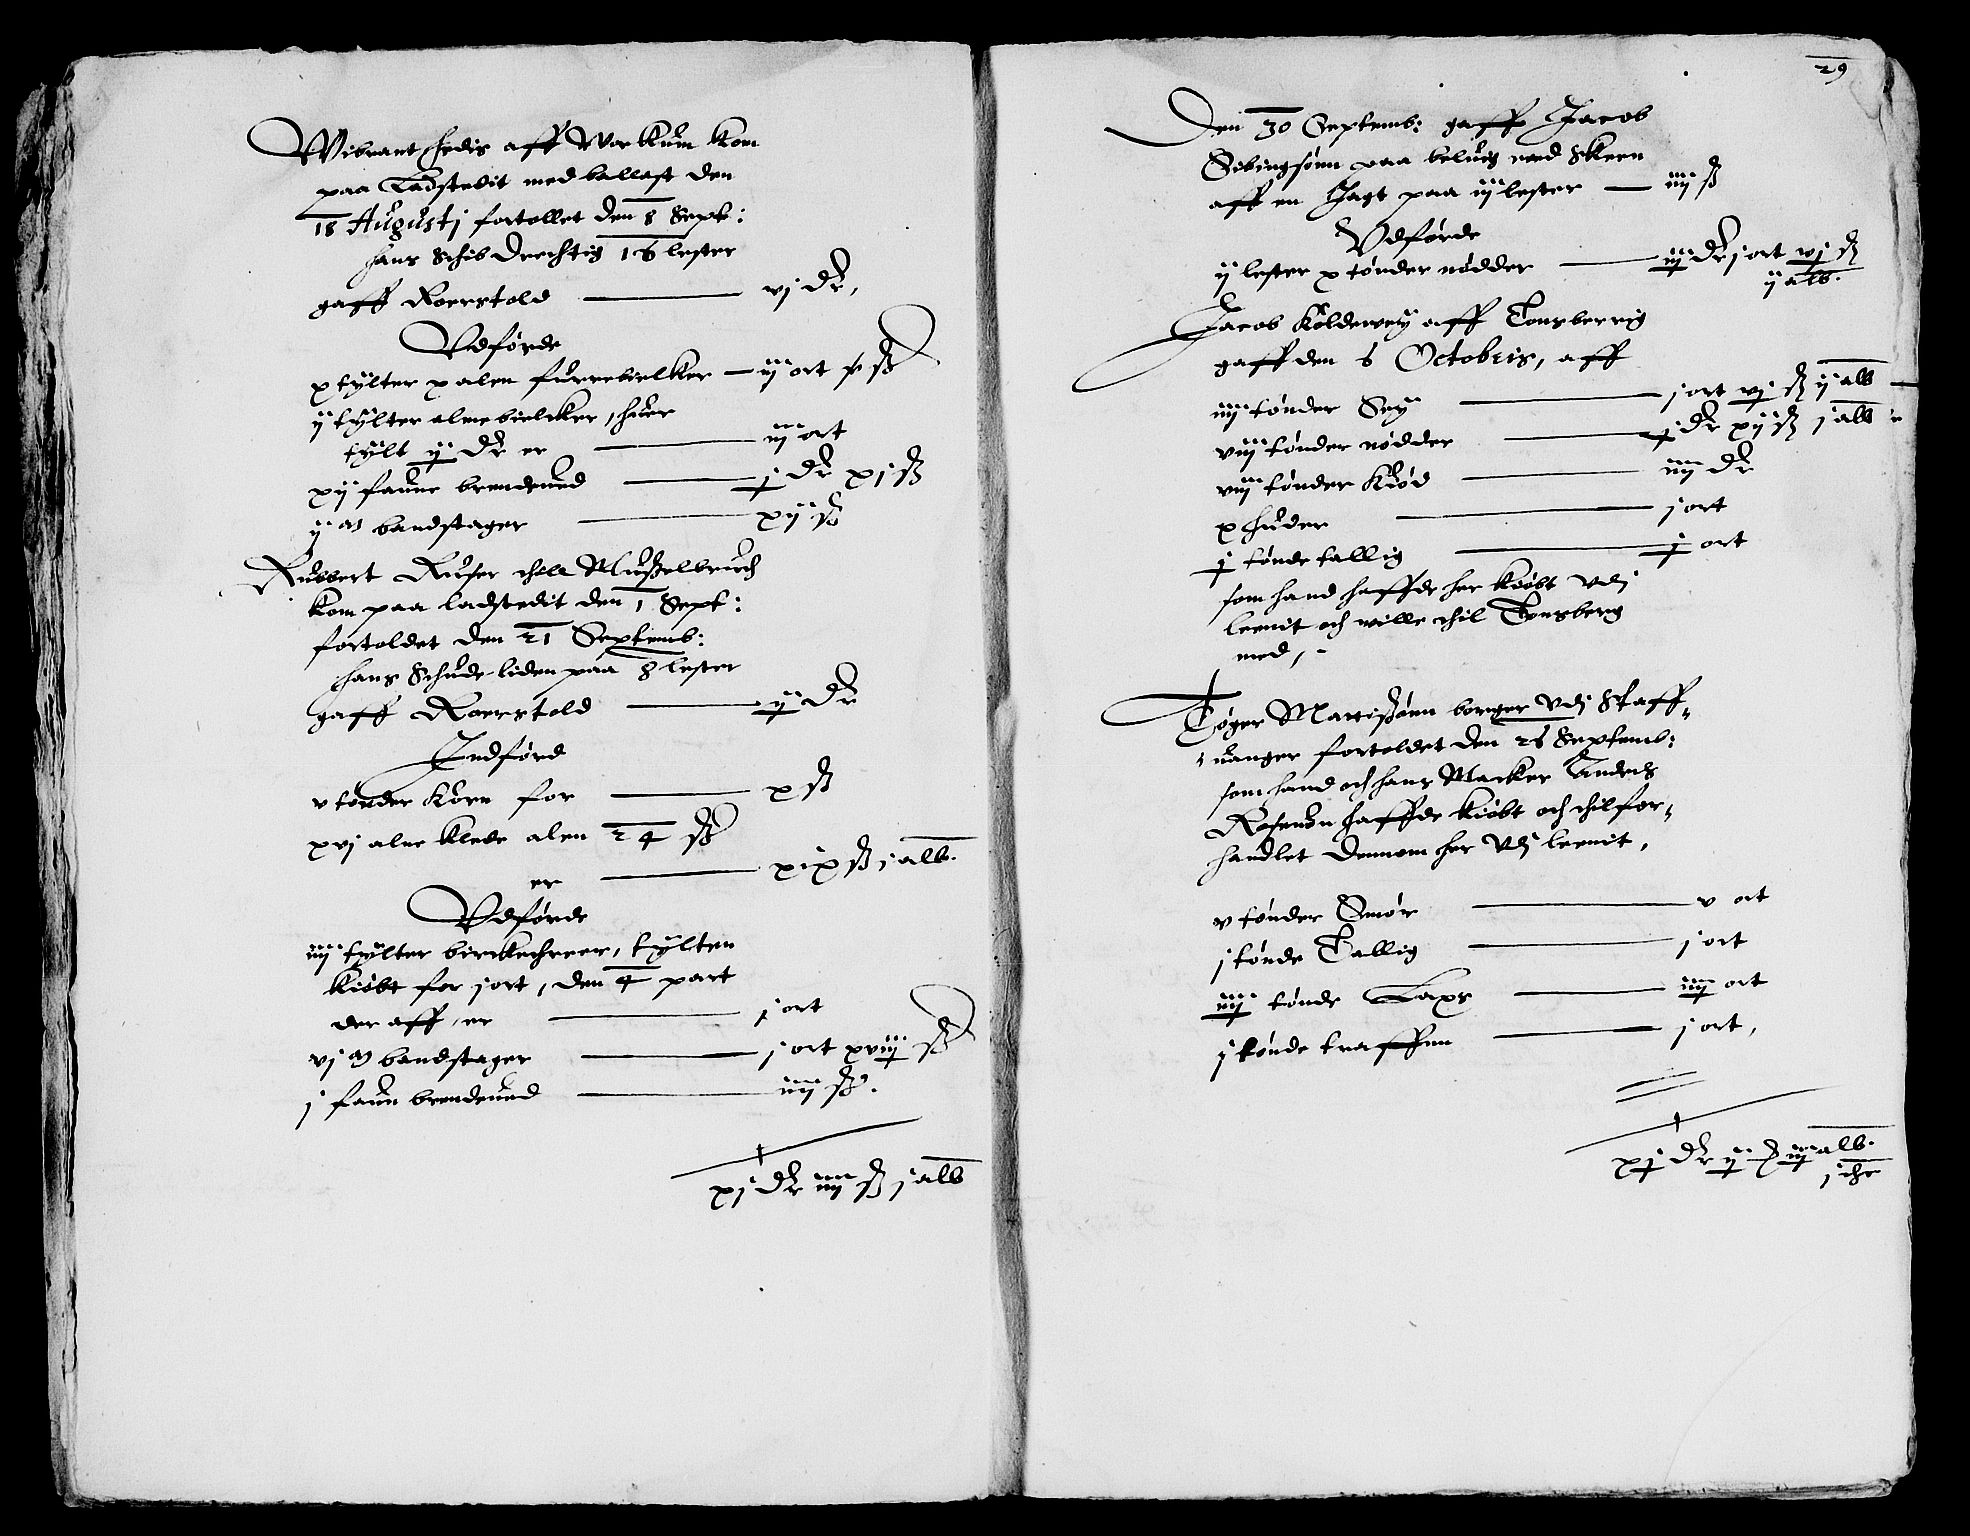 Wibrant Hedis aff Workum kom
paa Ladstedit med ballast den
18 Augustj fortollet den 8 Sept:
hans Schib drechtig 16 lester
gaff Roerstold — vj dr,
Vdførde
x tylter x alen furrebielker — iij ort ß
ij tylter alne bielcker, huer
tylt ij dr er — iij ort
xij faune brendeued — j dr xj ß
ij m bandstager — xij ß
Rubbert Ruser chill Musselbruch
kom paa ladstedit den 1 Sept:
fortoldet den 21 Septemb:
hans Schude liden paa 8 lester
gaff Roerstold — ij dr
Indførd
v tønder korn for — x ß
xvj alne klede alen 24 ß
er — xix ß j alb.
Vdførde
iiij tylter birckechreer, tylten
kiøbt for j ort, den 4 part
der aff, er — j ort
vj m bandstager — j ort xviij ß
j faun brendeued — iiij ß.
xj dr iiij ß j alb
29
Den 30 Septemb: gaff Jacob
Sibingsønn paa beluig med Skeen
aff en Jagt paa iij lester — iiij ß
Vdførde
ij lester x tønder nødder — iij dr j ort vj ß
ij alb.
Jacob Koldewey aff Tonsberrig
gaff den 6 Octobris, aff
iiij tønder Sey — j ort vj ß ij alb
viij tønder nødder — j dr xij ß j alb
viij tønder Kiød — iiij dr
x huder — j ort
j tønde tallig — j ort
som hand haffde her kiøbt vdj
leenit och wille thil Tonsberg
med, -
Tøger Mattissønn borger Vdj Staff-
uanger fortoldet den 26 Septemb:
som hand och hans Macker Anders
Rosenön haffde kiøbt och thilfor-
handlet dennom her Vdj leenit,
v tønder Smør — v ort
j tønde Tallig — j ort
iiij tønde Laxs — iiij ort
j tønde traffenn — j ort,
xj dr ij ß iij alb.
j